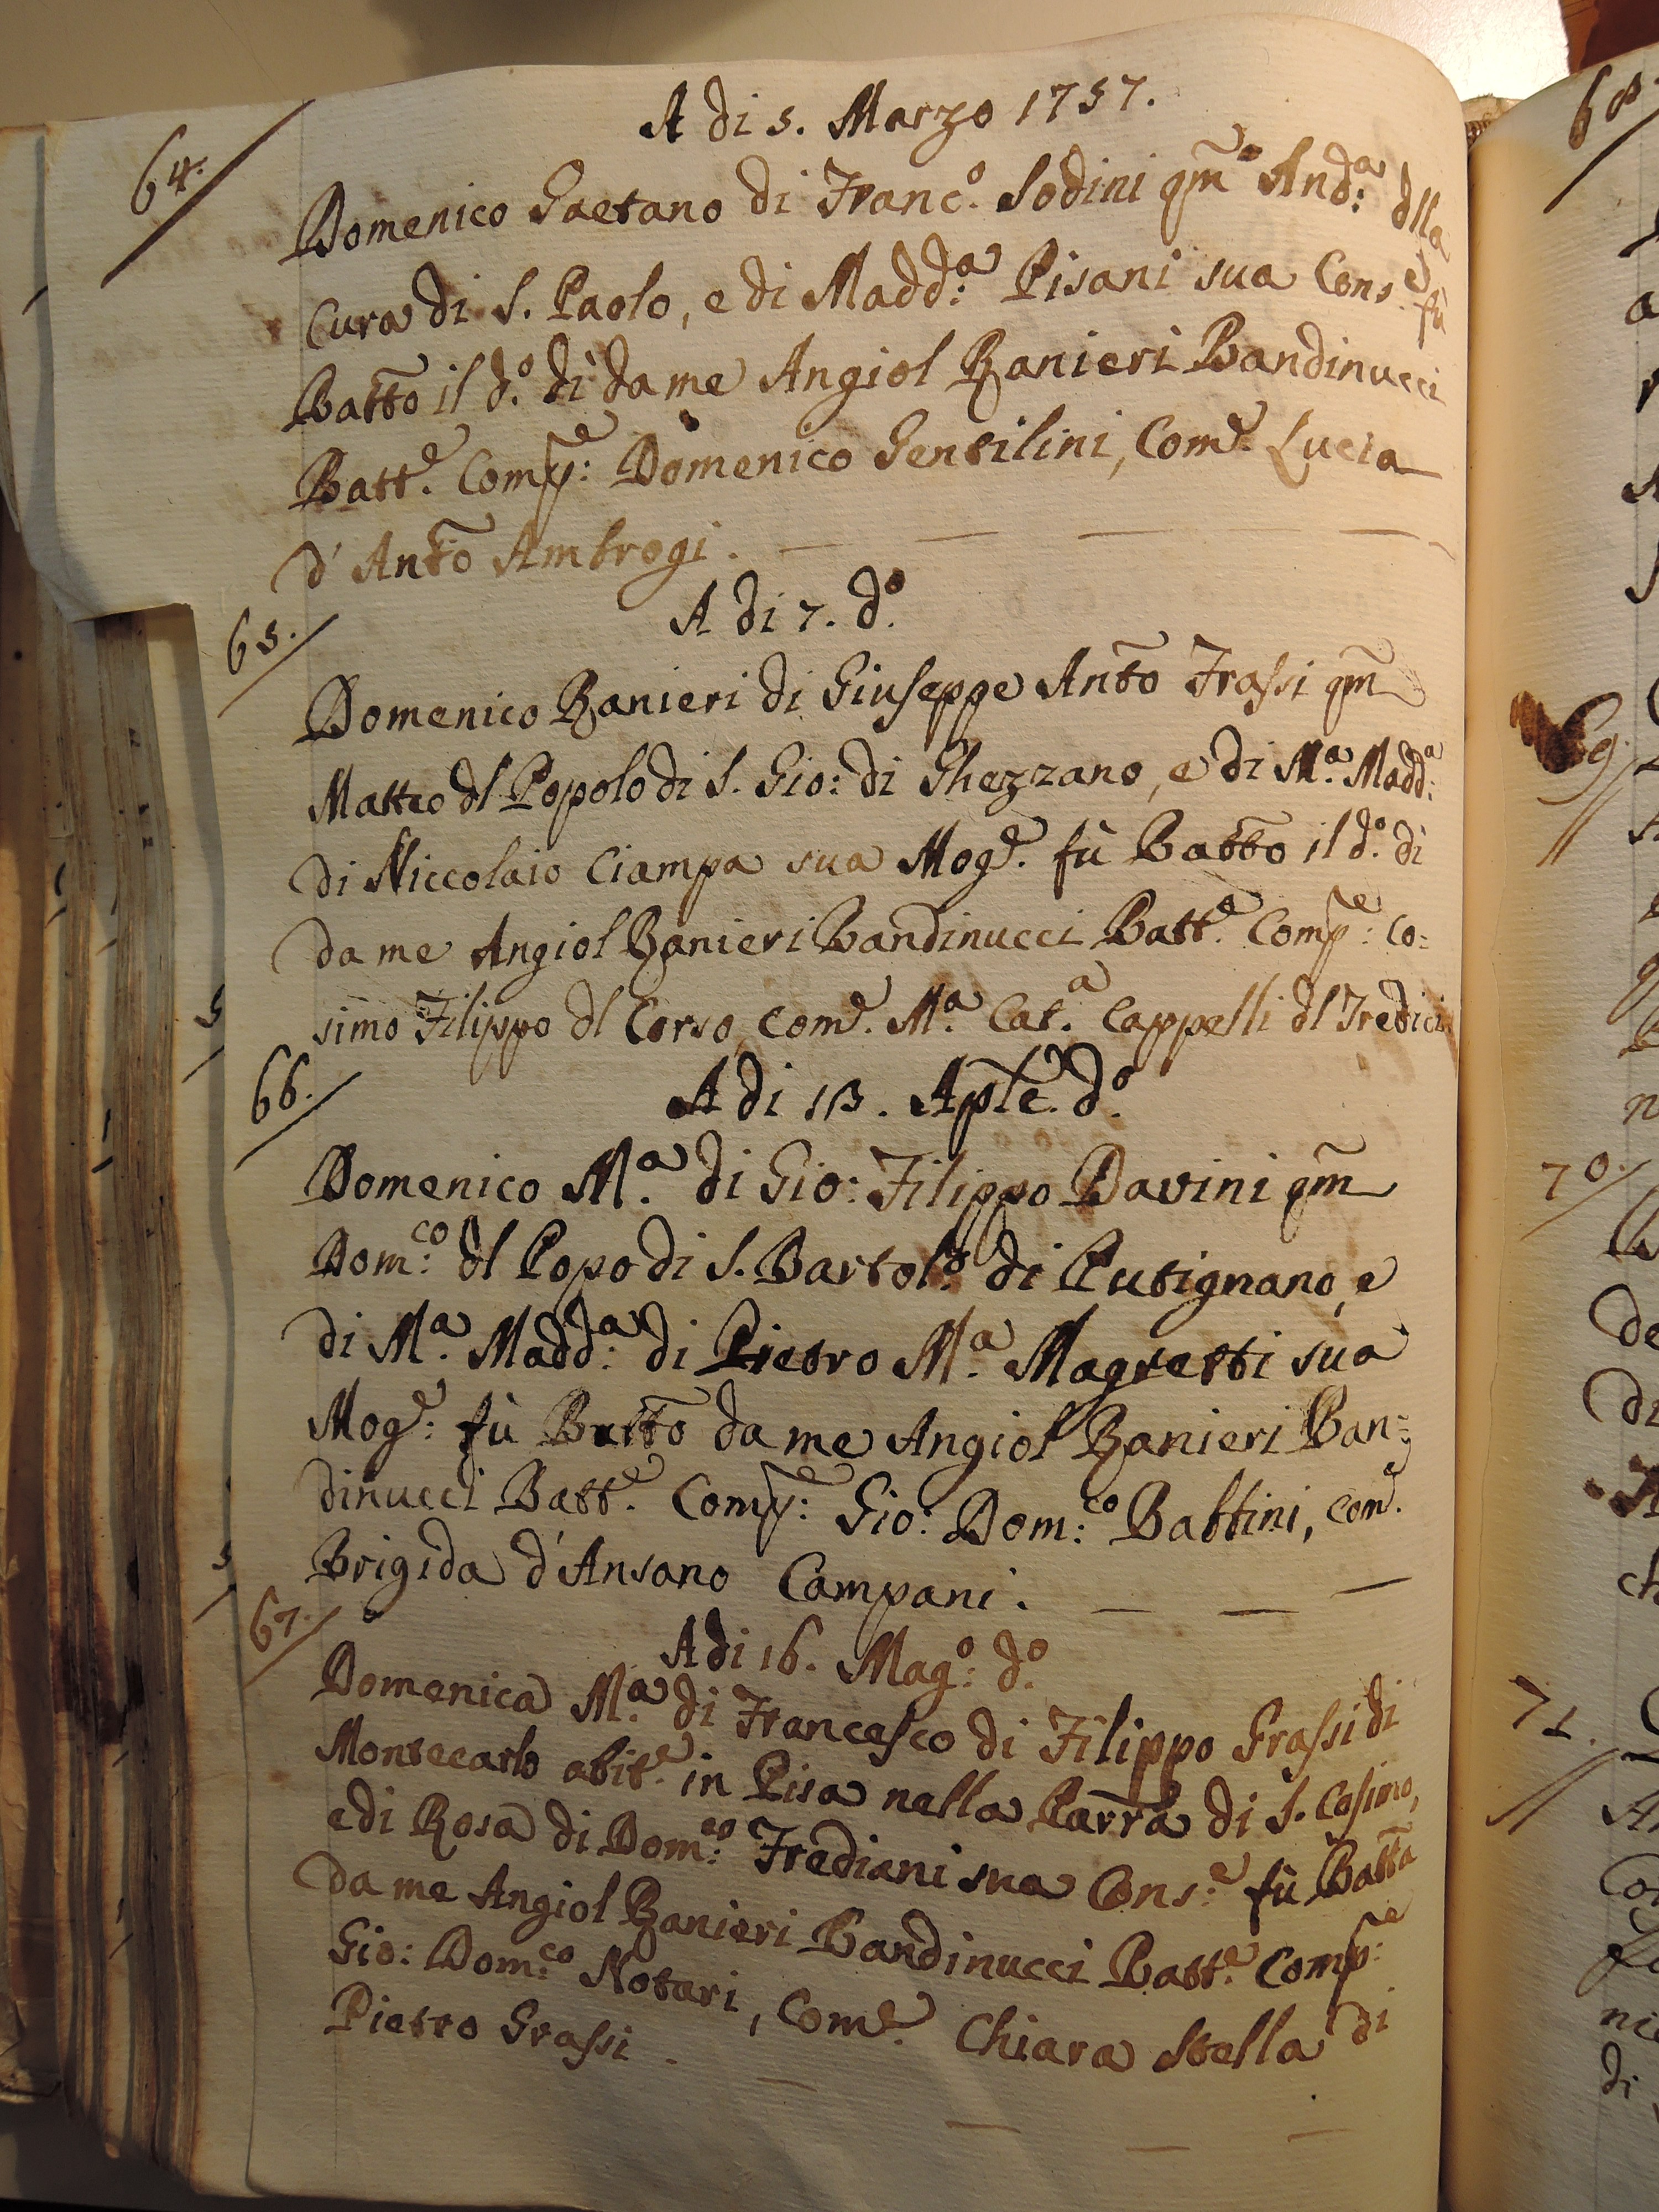 A di 5. Marzo 1757.
64.
Domenico Gaetano di Franc.º Sodini qm̃ And:ª dlla
Cura di S. Paolo, e di Madd:ª Pisani sua Cons.ᵉ fù
Batt̃o il d.º dì da me Angiol Ranieri Bandinucci
Batt.ᵉ Comp:ᵉ Domenico Gentilini, Com.ᵉ Lucia
d'Ant̃o Ambrogi.
A di 7. d.º
65.
Domenico Ranieri di Giuseppe Ant̃o Frassi qm̃
Matteo dl Popolo di S. Gio: di Ghezzano, e di M.ª Madd:ª
di Niccolaio Ciampa sua Mog.ᵉ fù Batt̃o il d.º dì
da me Angiol Ranieri Bandinucci Batt.ᵉ Comp:ᵉ Co=
simo Filippo dl Corso, Com.ᵉ M.ª Cat.ª Cappelli dl Tredici
A di 13. Apl̃e. d.º
66.
Domenico M.ª di Gio: Filippo Davini qm̃
Dom:ᶜᵒ dl Popo di S. Bartol.º di Putignano, e
di M.ª Madd:ª di Pietro M.ª Magretti sua
Mog:ᵉ fù Batt̃o da me Angiol Ranieri Ban=
dinucci Batt.ᵉ Comp:ᵉ Gio: Dom:ᶜᵒ Battini, Com.ᵉ
Brigida d'Ansano Campani.
A di 16. Mag:º d.º
67.
Domenica M.ª di Francesco di Filippo Grassi di
Montecarlo abit.ᵉ in Pisa nella Parr̃a di S. Cosimo,
e di Rosa di Dom:ᶜᵒ Frediani sua Cons:ᵉ fù Batt̃a
da me Angiol Ranieri Bandinucci Batt.ᵉ Comp:ᵉ
Gio: Dom:ᶜᵒ Notari, Com.ᵉ Chiara Stella di
Pietro Grassi.
68
69.
70.
71.